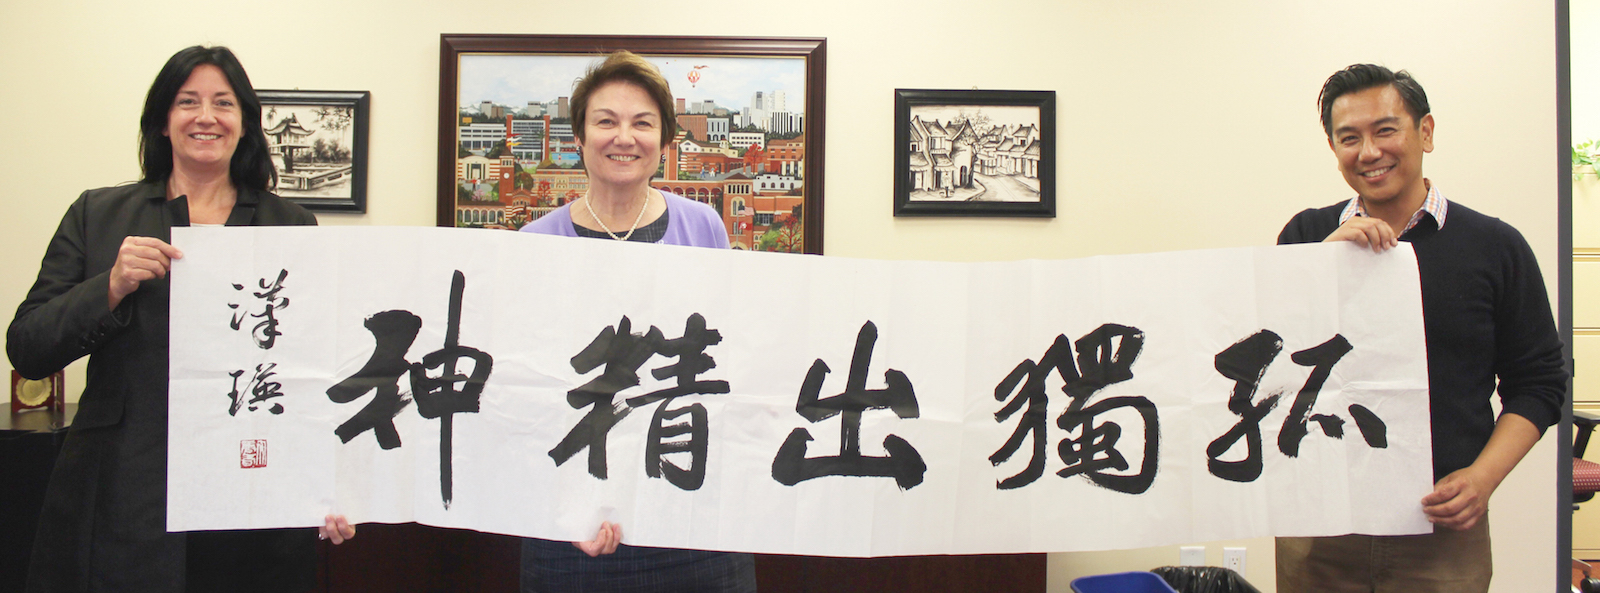 孤獨出精神
漢瑛